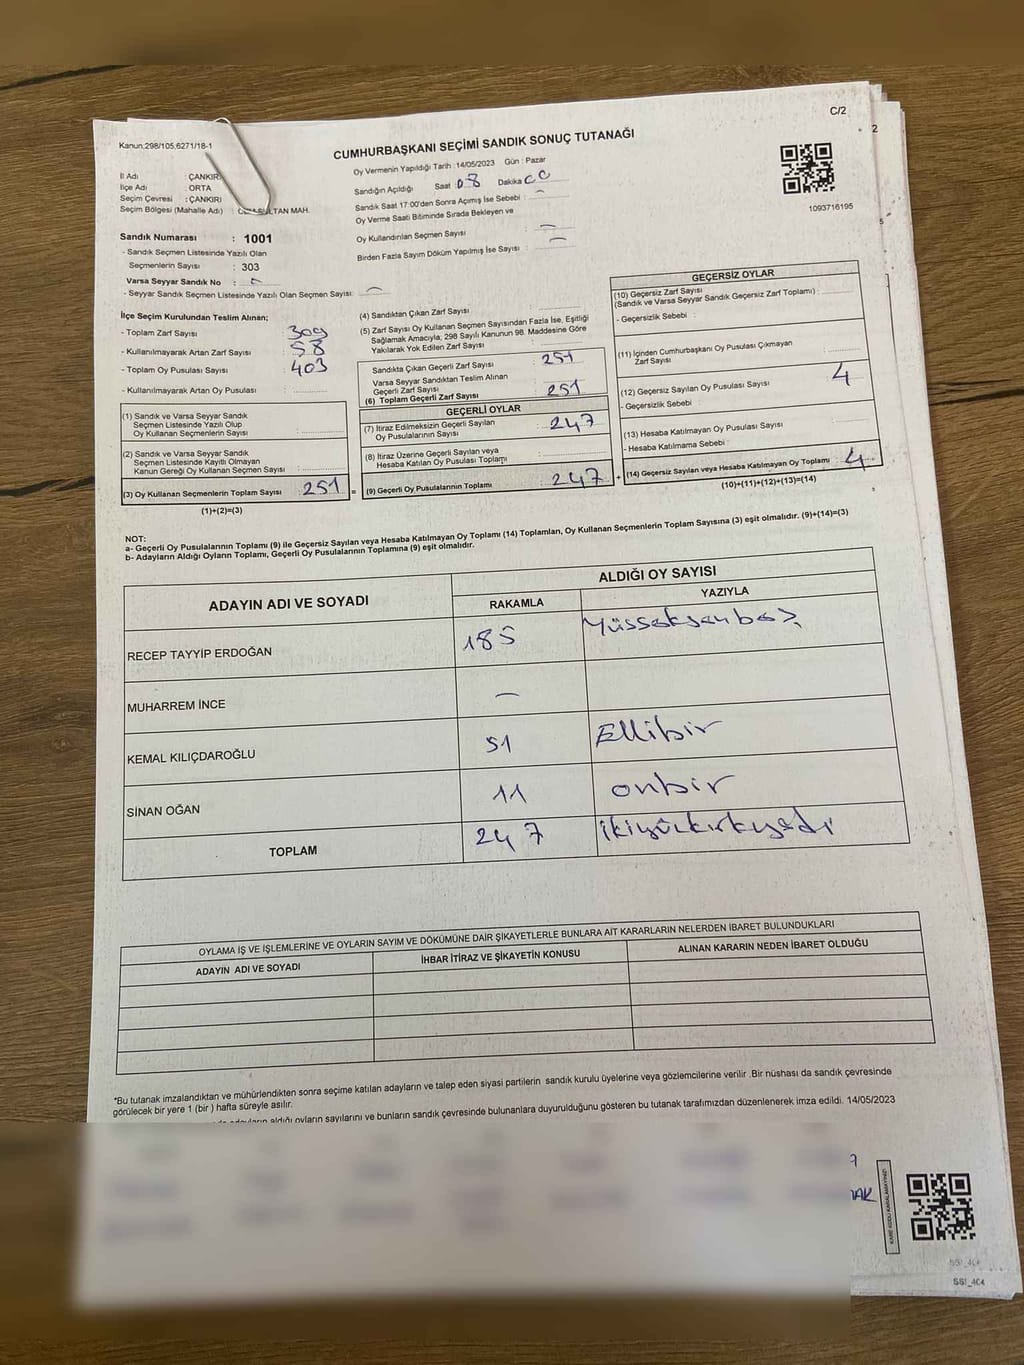 C/2
2
Kanun.298/105.6271/18-1
CUMHURBAŞKANI SEÇİMİ SANDIK SONUÇ TUTANAĞI
İl Adı : ÇANKIRI
İlçe Adı : ORTA
Seçim Çevresi : ÇANKIRI
Seçim Bölgesi (Mahalle Adı) : SULTAN MAH.
Sandık Numarası : 1001
- Sandık Seçmen Listesinde Yazılı Olan
Seçmenlerin Sayısı : 303
Varsa Seyyar Sandık No :
- Seyyar Sandık Seçmen Listesinde Yazılı Olan Seçmen Sayısı:
Oy Vermenin Yapıldığı Tarih : 14/05/2023 Gün : Pazar
Sandığın Açıldığı Saat : 08 Dakika 00
Sandık Saat 17:00'den Sonra Açımış İse Sebebi :
Oy Verme Saati Bitiminde Sırada Bekleyen ve
Oy Kullandırılan Seçmen Sayısı :
Birden Fazla Sayım Döküm Yapılmış İse Sayısı :
1093716195
5
İlçe Seçim Kurulundan Teslim Alınan;
- Toplam Zarf Sayısı : 309
- Kullanılmayarak Artan Zarf Sayısı : 58
- Toplam Oy Pusulası Sayısı : 403
- Kullanılmayarak Artan Oy Pusulası :
(1) Sandık ve Varsa Seyyar Sandık
Seçmen Listesinde Yazılı Olup
Oy Kullanan Seçmenlerin Sayısı :
(2) Sandık ve Varsa Seyyar Sandık
Seçmen Listesinde Kayıtlı Olmayan
Kanun Gereği Oy Kullanan Seçmen Sayısı :
(3) Oy Kullanan Seçmenlerin Toplam Sayısı : 251
(1)+(2)=(3)
=
(4) Sandıktan Çıkan Zarf Sayısı :
(5) Zarf Sayısı Oy Kullanan Seçmen Sayısından Fazla İse, Eşitliği
Sağlamak Amacıyla; 298 Sayılı Kanunun 98. Maddesine Göre
Yakılarak Yok Edilen Zarf Sayısı :
Sandıkta Çıkan Geçerli Zarf Sayısı : 251
Varsa Seyyar Sandıktan Teslim Alınan
Geçerli Zarf Sayısı :
(6) Toplam Geçerli Zarf Sayısı : 251
GEÇERLİ OYLAR
(7) İtiraz Edilmeksizin Geçerli Sayılan
Oy Pusulalarının Sayısı : 247
(8) İtiraz Üzerine Geçerli Sayılan veya
Hesaba Katılan Oy Pusulası Toplamı :
(9) Geçerli Oy Pusulalarının Toplamı : 247
+
GEÇERSİZ OYLAR
(10) Geçersiz Zarf Sayısı
(Sandık ve Varsa Seyyar Sandık Geçersiz Zarf Toplamı) :
- Geçersizlik Sebebi :
(11) İçinden Cumhurbaşkanı Oy Pusulası Çıkmayan
Zarf Sayısı :
(12) Geçersiz Sayılan Oy Pusulası Sayısı : 4
- Geçersizlik Sebebi :
(13) Hesaba Katılmayan Oy Pusulası Sayısı :
- Hesaba Katılmama Sebebi :
(14) Geçersiz Sayılan veya Hesaba Katılmayan Oy Toplamı : 4
(10)+(11)+(12)+(13)=(14)
NOT:
a- Geçerli Oy Pusulalarının Toplamı (9) ile Geçersiz Sayılan veya Hesaba Katılmayan Oy Toplamı (14) Toplamları, Oy Kullanan Seçmenlerin Toplam Sayısına (3) eşit olmalıdır. (9)+(14)=(3)
b- Adayların Aldığı Oyların Toplamı, Geçerli Oy Pusulalarının Toplamına (9) eşit olmalıdır.
ADAYIN ADI VE SOYADI
ALDIĞI OY SAYISI
RAKAMLA YAZIYLA
RECEP TAYYİP ERDOĞAN 185 Yüzseksenbeş
MUHARREM İNCE —
KEMAL KILIÇDAROĞLU 51 Ellibir
SİNAN OĞAN 11 onbir
TOPLAM 247 ikiyüzkırkyedi
OYLAMA İŞ VE İŞLEMLERİNE VE OYLARIN SAYIM VE DÖKÜMÜNE DAİR ŞİKAYETLERLE BUNLARA AİT KARARLARIN NELERDEN İBARET BULUNDUKLARI
ADAYIN ADI VE SOYADI İHBAR İTİRAZ VE ŞİKAYETİN KONUSU ALINAN KARARIN NEDEN İBARET OLDUĞU
*Bu tutanak imzalandıktan ve mühürlendikten sonra seçime katılan adayların ve talep eden siyasi partilerin sandık kurulu üyelerine veya gözlemcilerine verilir .Bir nüshası da sandık çevresinde
görülecek bir yere 1 (bir ) hafta süreyle asılır.
adayların aldığı oyların sayılarını ve bunların sandık çevresinde bulunanlara duyurulduğunu gösteren bu tutanak tarafımızdan düzenlenerek imza edildi. 14/05/2023
KARE KODU KARALAMAYINIZ!
SS!_4C4
SS!_4C4